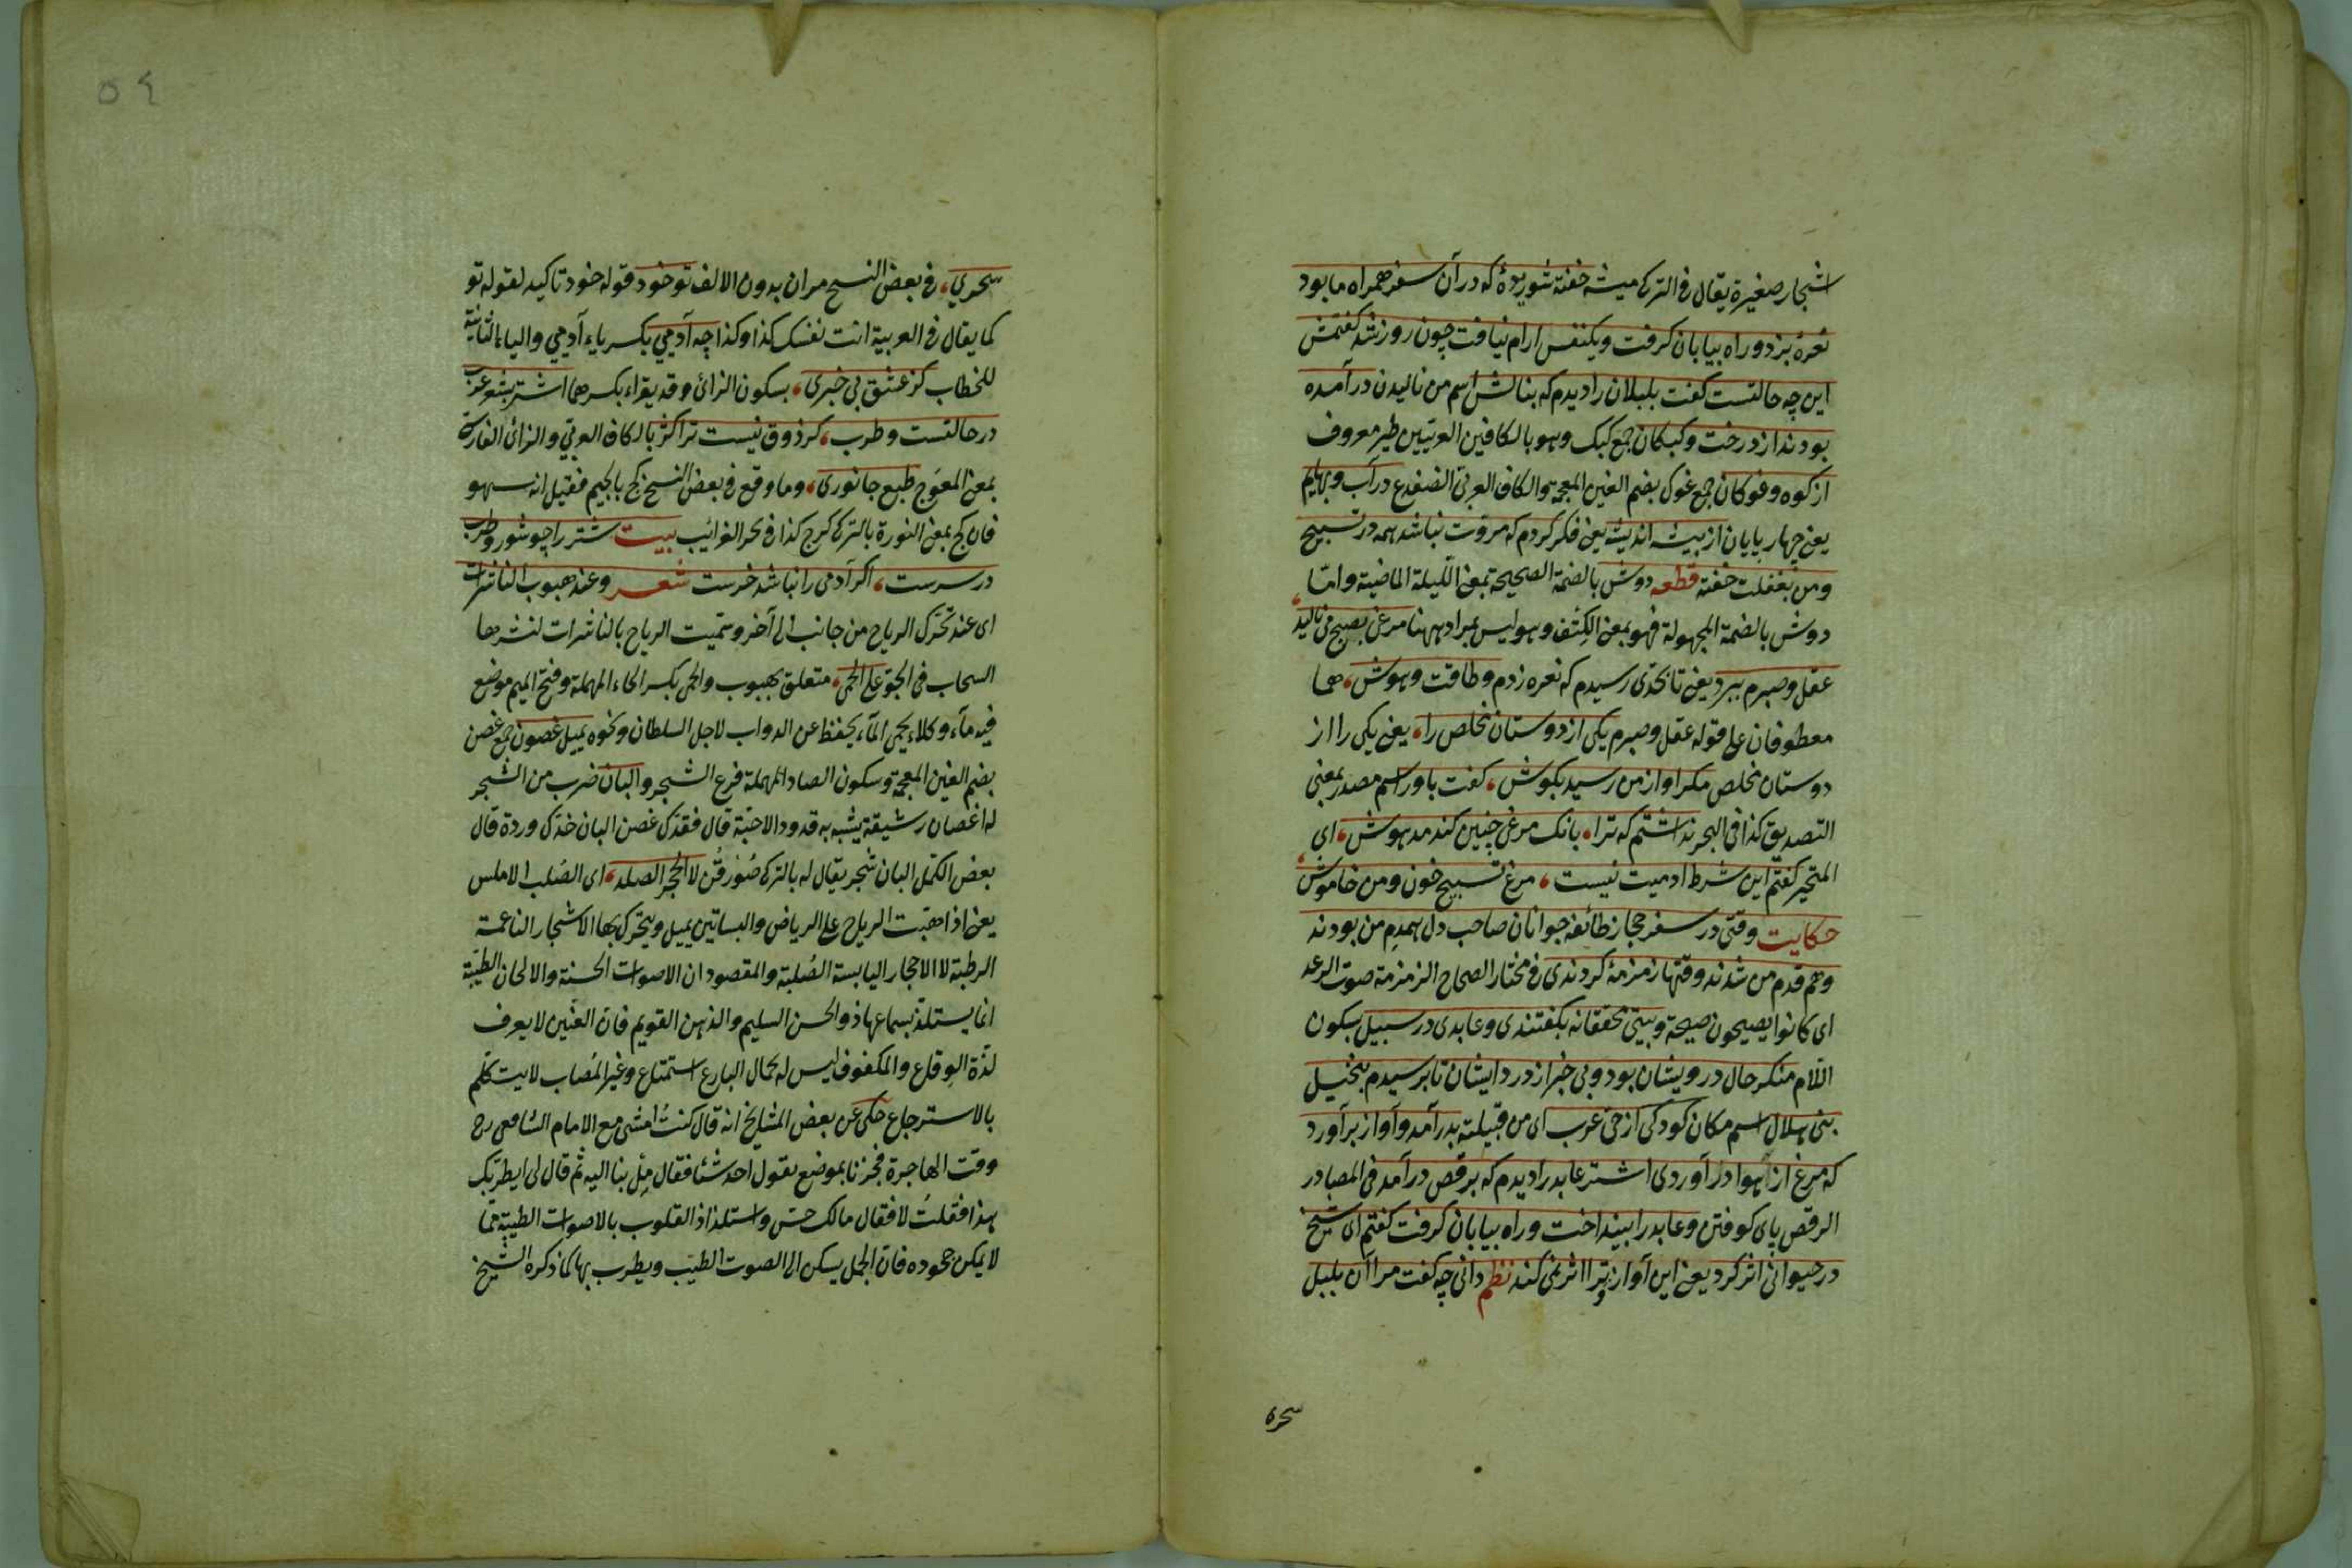 اشجار صغيرة يقال فى التركى ميشه خفته شوريدۀ كه در آن سفر همراه ما بود
نعرۀ بزد و راه بيابان كرفت ويكنفس ارام نيافت چون روز شد كفتمش
اين چه حالتست كفت بلبلان را ديدم كه بنالش اسم من ناليدن در آمده
بودند از درخت وكبكان جمع كبك وهو بالكافين العربيتين طير معروف
از كوه وغوكان جمع غوك بضم الغين المعجمة والكاف العربى الضفدع در آب وبهايم
يعنى چهار پايان از بيشه انديشه يعنى فكر كردم كه مروت نباشد همه در تسبيح
ومن بغفلت خفته قطعه دوش بالضمة الصحيحة بمعنى الليلة الماضية واما
دوش بالضمة المجهولة فهو بمعنى الكتف وهو ليس بمراد ههنا مرغى بصبح مى ناليد
عقل وصبرم ببرد يعنى تا بحدى رسيدم كه نعره زدم وطاقت وهوش، هما
معطوفان على قوله عقل وصبرم يكى از دوستان مخلص را، يعنى يكى را از
دوستان مخلص مكر اواز من رسيد بكوش، كفت باور اسم مصدر بمعنى
التصديق كذا فى البحر نداشتم كه ترا، بانك مرغى چنين كند مدهوش، اى
المتحير كفتم اين شرط ادميت نيست، مرغ تسبيح خون ومن خاموش
حكايت وقتى در سفر حجاز طائفه جوانان صاحب دل همدم من بودند
وهم قدم من شدند وقتها زمزمۀ كردندى فى مختار الصحاح الزمزمة صوت الرعد
اى كانوا يصيحون صيحة وبيتى محققانه بكفتندى وعابدى در سبيل بسكون
اللام منكر حال درويشان بود وبى خبر از درد ايشان تا برسيدم بنخيل
بنى هلال اسم مكان كودكى از حى عرب اى من قبيلته بدر آمد وآواز برآورد
كه مرغ از هوا در آوردى اشتر عابد را ديدم كه برقص درآمد فى المصادر
الرقص پاى كوفتن وعابد را بينداخت وراه بيابان كرفت كفتم اى شيخ
در حيوانى اثر كرد يعنى اين آواز وترا اثر نمى كند نظم دانى چه كفت مرا آن بلبل
سحرى
٥٤
سحرى، فى بعض النسخ مران بدون الالف تو خود قوله خود تاكيد لقوله تو
كما يقال فى العربية انت نفسك كذا وكذا چه آدميى بكسر ياء آدمى والياء الثانية
للخطاب كز عشق بى خبرى، بسكون الزائ وقد يقراء بكسرها اشتر بشعر عرب
در حالتست وطرب، كر ذوق نيست ترا كژ بالكاف العربى والزائ الفارسى
بمعنى المعوج طبع جانورى، وما وقع فى بعض النسخ كج بالجيم فقيل انه سهو
فان كج بمعنى النورة بالتركى كرج كذا فى بحر الغرائب بيت شتر را چو شور وطرب
در سرست، اكر آدمى را نباشد خرست شعر وعند هبوب الناشرات
اى عند تحرك الرياح من جانب الى آخر وسميت الرياح بالناشرات لنشرها
السحاب فى الجو على الحمى، متعلق بهبوب والحمى بكسر الحاء المهملة وفتح الميم موضع
فيه ماء وكلاء يحمى الماء يحفظ عن الدواب لاجل السلطان ونحوه يميل غصون جمع غصن
بضم الغين المعجمة وسكون الصاد المهملة فرع الشجر والبان ضرب من الشجر
له اغصان رشيقة يشبه به قدود الاحبة قال فقدك غصن البان خدك وردة قال
بعض الكمل البان شجر يقال له بالتركى صورقن لا الحجر الصلد، اى الصلب الاملس
يعنى اذا هبت الرياح على الرياض والبساتين يميل ويتحرك بها الاشجار الناعمة
الرطبة لا الاحجار اليابسة الصلبة والمقصود ان الاصوات الحسنة والالحان الطيبة
انما يستلذ بسماعها ذو الحسن السليم والذهن القويم فان العنين لا يعرف
لذة الوقاع والمكفوف ليس له بجمال البارع استمتاع وغير المصاب لا يتكلم
بالاسترجاع حكى عن بعض المشايخ انه قال كنت امشى مع الامام الشافعى رح
وقت الهاجرة فجزنا بموضع يقول احد شئا فقال مل بنا اليه ثم قال لى ايطربك
هذا فقلت لا فقال مالك حس واستلذاذ القلوب بالاصوات الطيبة مما
لا يمكن جحوده فان الجمل يسكن الى الصوت الطيب ويطرب بها كما ذكره الشيخ